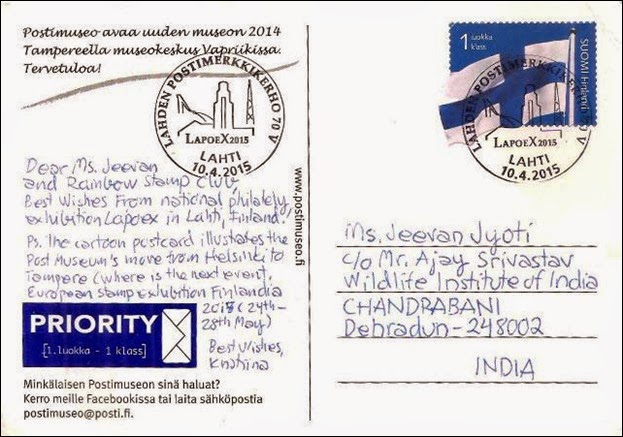 Postimuseo avaa uuden museon 2014
Tampereella museokeskus Vapriikissa.
Tervetuloa!
LAHDEN POSTIMERKKIKERHO 70 V
LAPOEX2015
LAHTI
10.4.2015
1 luokka
klass
SUOMI FINLAND
LAHDEN POSTIMERKKIKERHO 70 V
LAPOEX2015
LAHTI
10.4.2015
Dear Ms. Jeevan
and Rainbow Stamp Club,
Best Wishes From national philately
exhibition Lapoex in Lahti, Finland!
Ps. The cartoon postcard illustrates the
Post Museum's move from Helsinki to
Tampere (where is the next event,
European Stamp Exhibition Finlandia
(24th-
28th May)
Best Wishes,
www.postimuseo.fi
PRIORITY
[1.luokka - 1 klass]
Minkälaisen Postimuseon sinä haluat?
Kerro meille Facebookissa tai laita sähköpostia
postimuseo@posti.fi.
Ms. Jeevan Jyoti
c/o Mr. Ajay Srivastav
Wildlife Institute of India
CHANDRABANI
Debradun-248002
INDIA